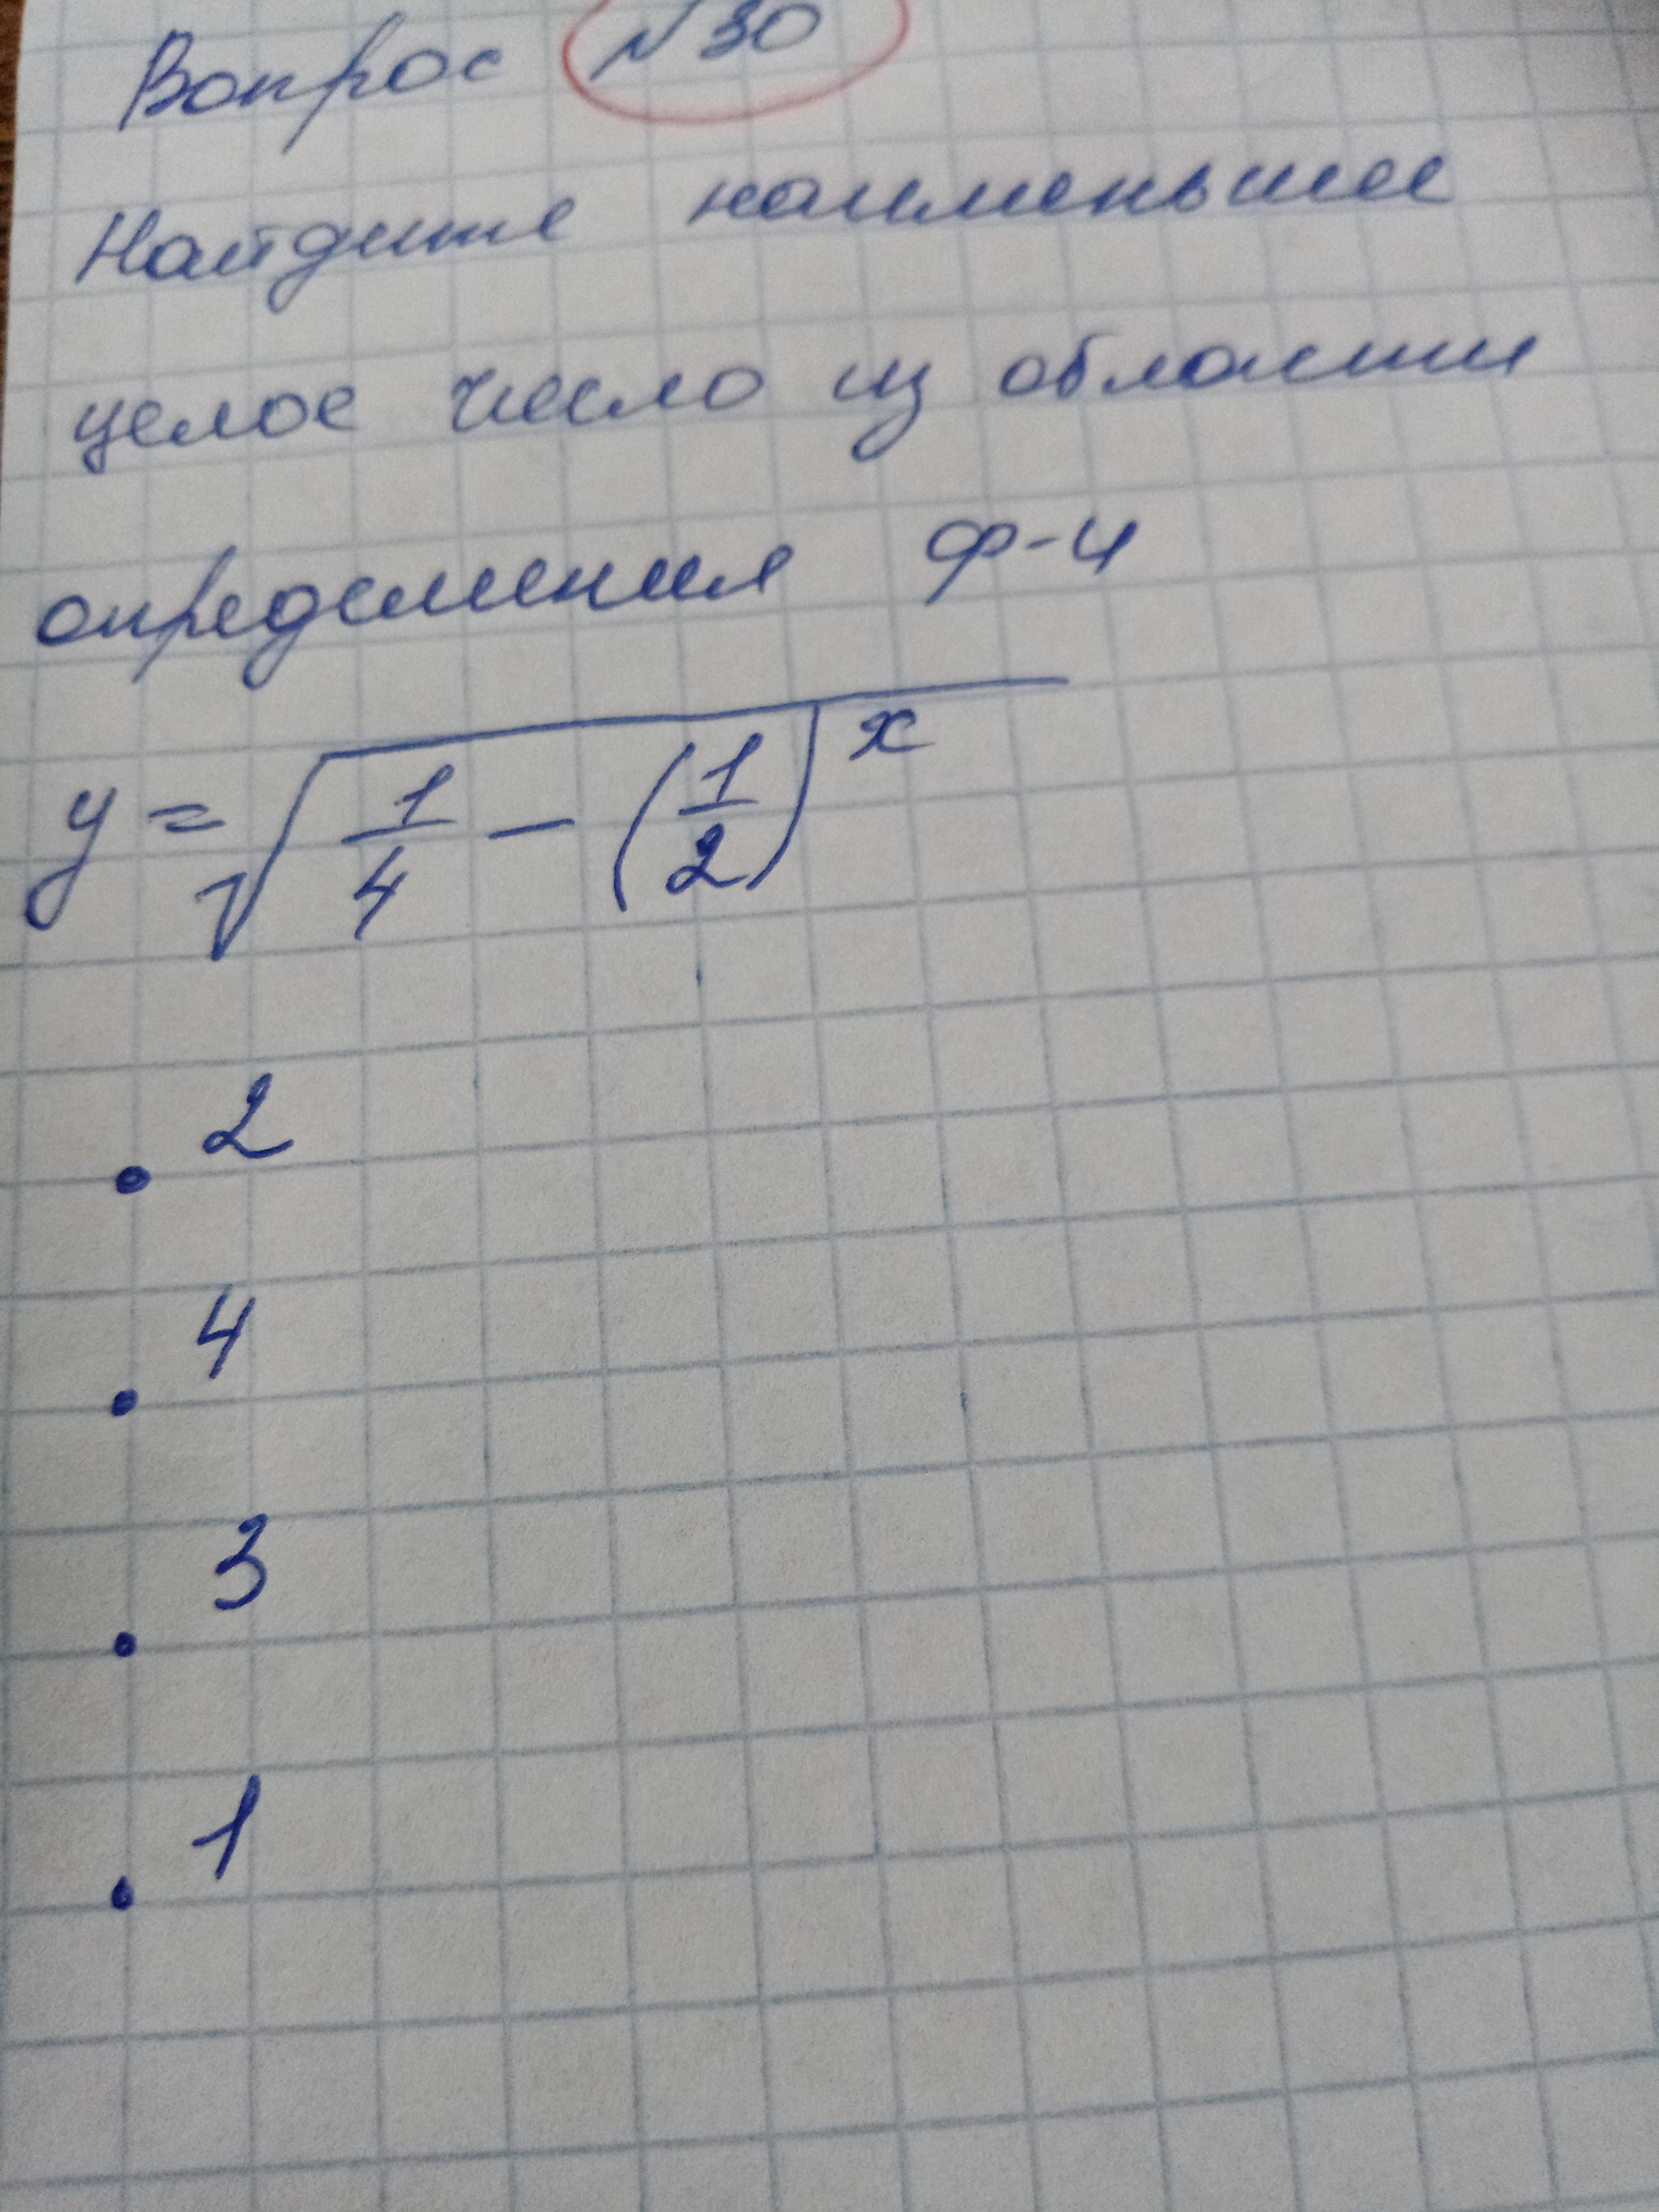 Вопрос №30
Найдите наименьшее
целое число из области
определения ф-и
y = √(1/4 - (1/2)^x)
• 2
• 4
• 3
• 1